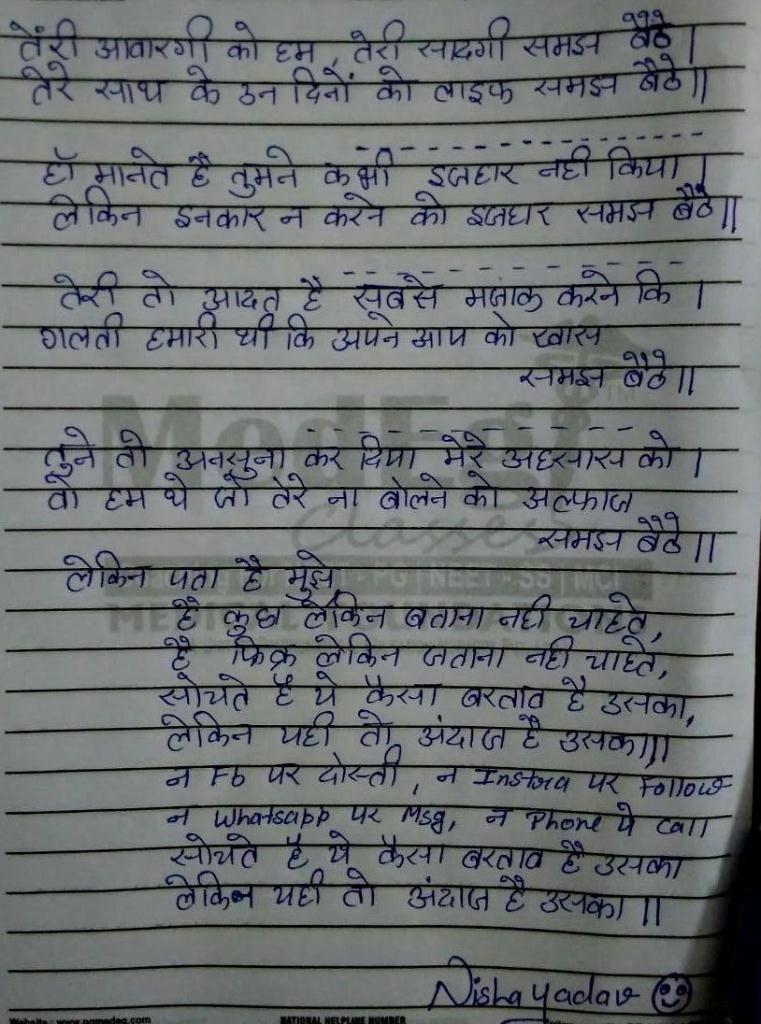 तेरी आवारगी को हम, तेरी सादगी समझ बैठे |
तेरे साथ के उन दिनों को लाइफ समझ बैठे ||
हाँ मानते है तुमने कभी इजहार नही किया |
लेकिन इनकार न करने को इजहार समझ बैठे ||
तेरी तो आदत है सबसे मजाक करने कि |
गलती हमारी थी कि अपने आप को खास
समझ बैठे ||
तुने तो अनसुना कर दिया मेरे अहसास को |
वो हम थे जो तेरे ना बोलने को अल्फाज
समझ बैठे ||
लेकिन पता है मुझे
है कुछ लेकिन बताना नही चाहते,
है फिक्र लेकिन जताना नही चाहते,
सोचते है ये कैसा बरताव है उसका,
लेकिन यही तो अंदाज है उसका ||
न Fb पर दोस्ती, न Instra पर Follow
न Whatsapp पर Msg, न Phone पे call
सोचते है ये कैसा बरताव है उसका
लेकिन यही तो अंदाज है उसका ||
Nisha Yadav
MedEgi TM
Classes
PG | NEET - SS | MCI
Website : www.pgmedeg.com NATIONAL HELPLINE NUMBER